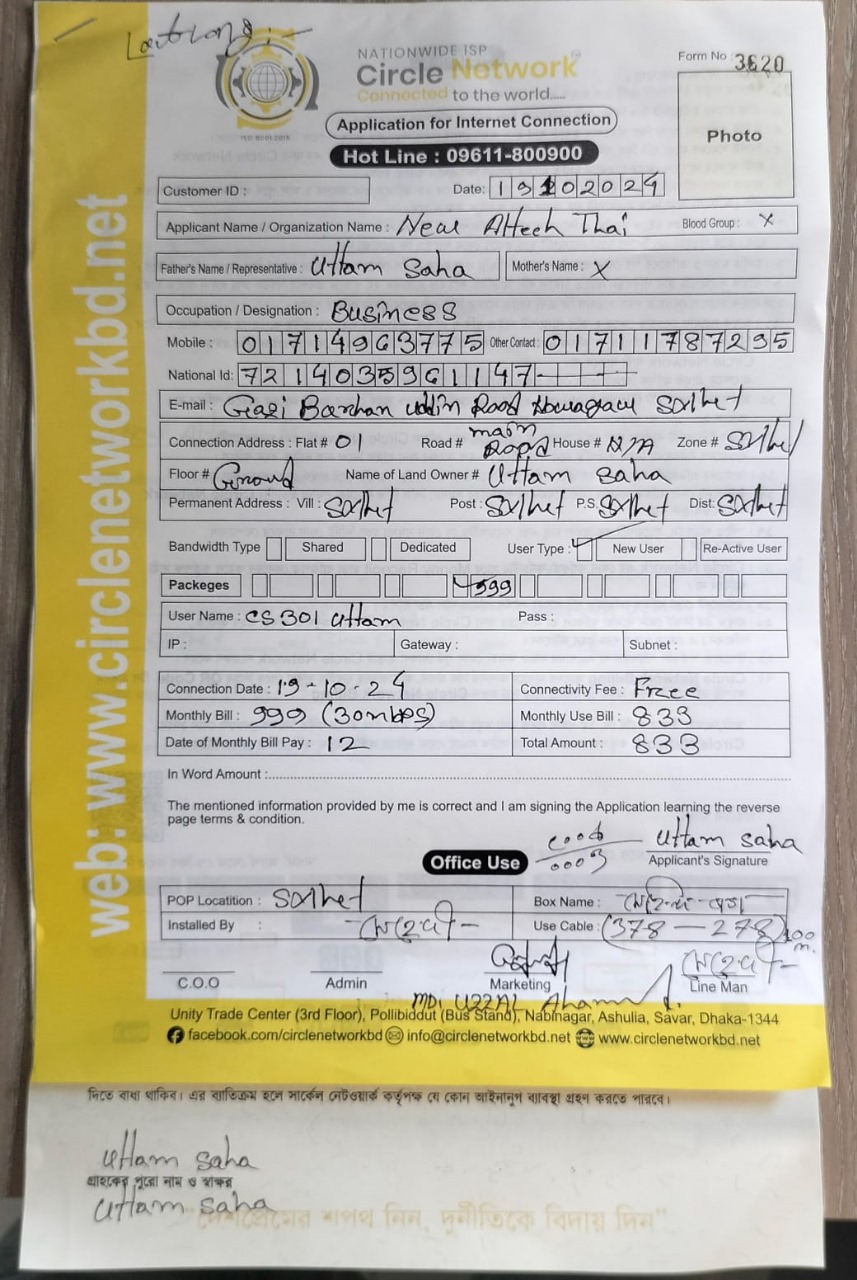 NATIONWIDE ISP
Circle Network
Connected to the world.....
ISO 9001:2015
Form No 3620
Photo
Application for Internet Connection
Hot Line : 09611-800900
Customer ID :
Date: 19102024
Applicant Name / Organization Name : New Altech Thai Blood Group : X
Father's Name / Representative : Uttam Saha Mother's Name : X
Occupation / Designation : Business
Mobile : 01714963775 Other Contact : 01711787295
National Id: 7214035961147
E-mail : Gazi Burhan uddin Road Sylhet
Connection Address : Flat # 01 Road # main Road House # N/A Zone # Sylhet
Floor # Ground Name of Land Owner # Uttam Saha
Permanent Address : Vill : Sylhet Post : Sylhet P.S. Sylhet Dist: Sylhet
Bandwidth Type Shared Dedicated User Type : New User Re-Active User
Packeges 999
User Name : CS301 Uttam Pass :
IP : Gateway : Subnet :
Connection Date : 19-10-24 Connectivity Fee : Free
Monthly Bill : 999 (30mbps) Monthly Use Bill : 833
Date of Monthly Bill Pay : 12 Total Amount : 833
In Word Amount :
The mentioned information provided by me is correct and I am signing the Application learning the reverse
page terms & condition.
Uttam Saha
Applicant's Signature
Office Use
POP Locatition : Sylhet Box Name :
Installed By : Use Cable : (378 - 278) 100 m.
C.O.O Admin Marketing Line Man
Unity Trade Center (3rd Floor), Pollibiddut (Bus Stand), Nabinagar, Ashulia, Savar, Dhaka-1344
facebook.com/circlenetworkbd info@circlenetworkbd.net www.circlenetworkbd.net
web: www.circlenetworkbd.net
দিতে বাধ্য থাকিব। এর ব্যতিক্রম হলে সার্কেল নেটওয়ার্ক কর্তৃপক্ষ যে কোন আইনানুগ ব্যাবস্থা গ্রহণ করতে পারবে।
Uttam Saha
গ্রাহকের পুরো নাম ও স্বাক্ষর
Uttam Saha
"দেশপ্রেমের শপথ নিন, দুর্নীতিকে বিদায় দিন"